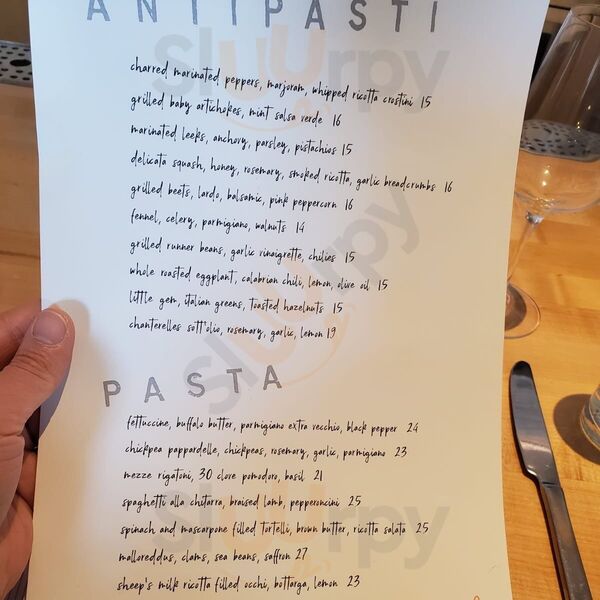 ANTIPASTI
charred marinated peppers, marjoram, whipped ricotta crostini 15
grilled baby artichokes, mint salsa verde 16
marinated leeks, anchovy, parsley, pistachios 15
delicata squash, honey, rosemary, smoked ricotta, garlic breadcrumbs 16
grilled beets, lardo, balsamic, pink peppercorn 16
fennel, celery, parmigiano, walnuts 14
grilled runner beans, garlic vinaigrette, chilies 15
whole roasted eggplant, calabrian chili, lemon, olive oil 15
little gem, italian greens, toasted hazelnuts 15
chanterelles sott'olio, rosemary, garlic, lemon 19
PASTA
fettuccine, buffalo butter, parmigiano extra vecchio, black pepper 24
chickpea pappardelle, chickpeas, rosemary, garlic, parmigiano 23
mezze rigatoni, 30 clove pomodoro, basil 21
spaghetti alla chitarra, braised lamb, pepperoncini 25
spinach and mascarpone filled tortelli, brown butter, ricotta salata 25
malloreddus, clams, sea beans, saffron 27
sheep's milk ricotta filled occhi, bottarga, lemon 23
Sluurpy
Sluurpy
Sluurpy